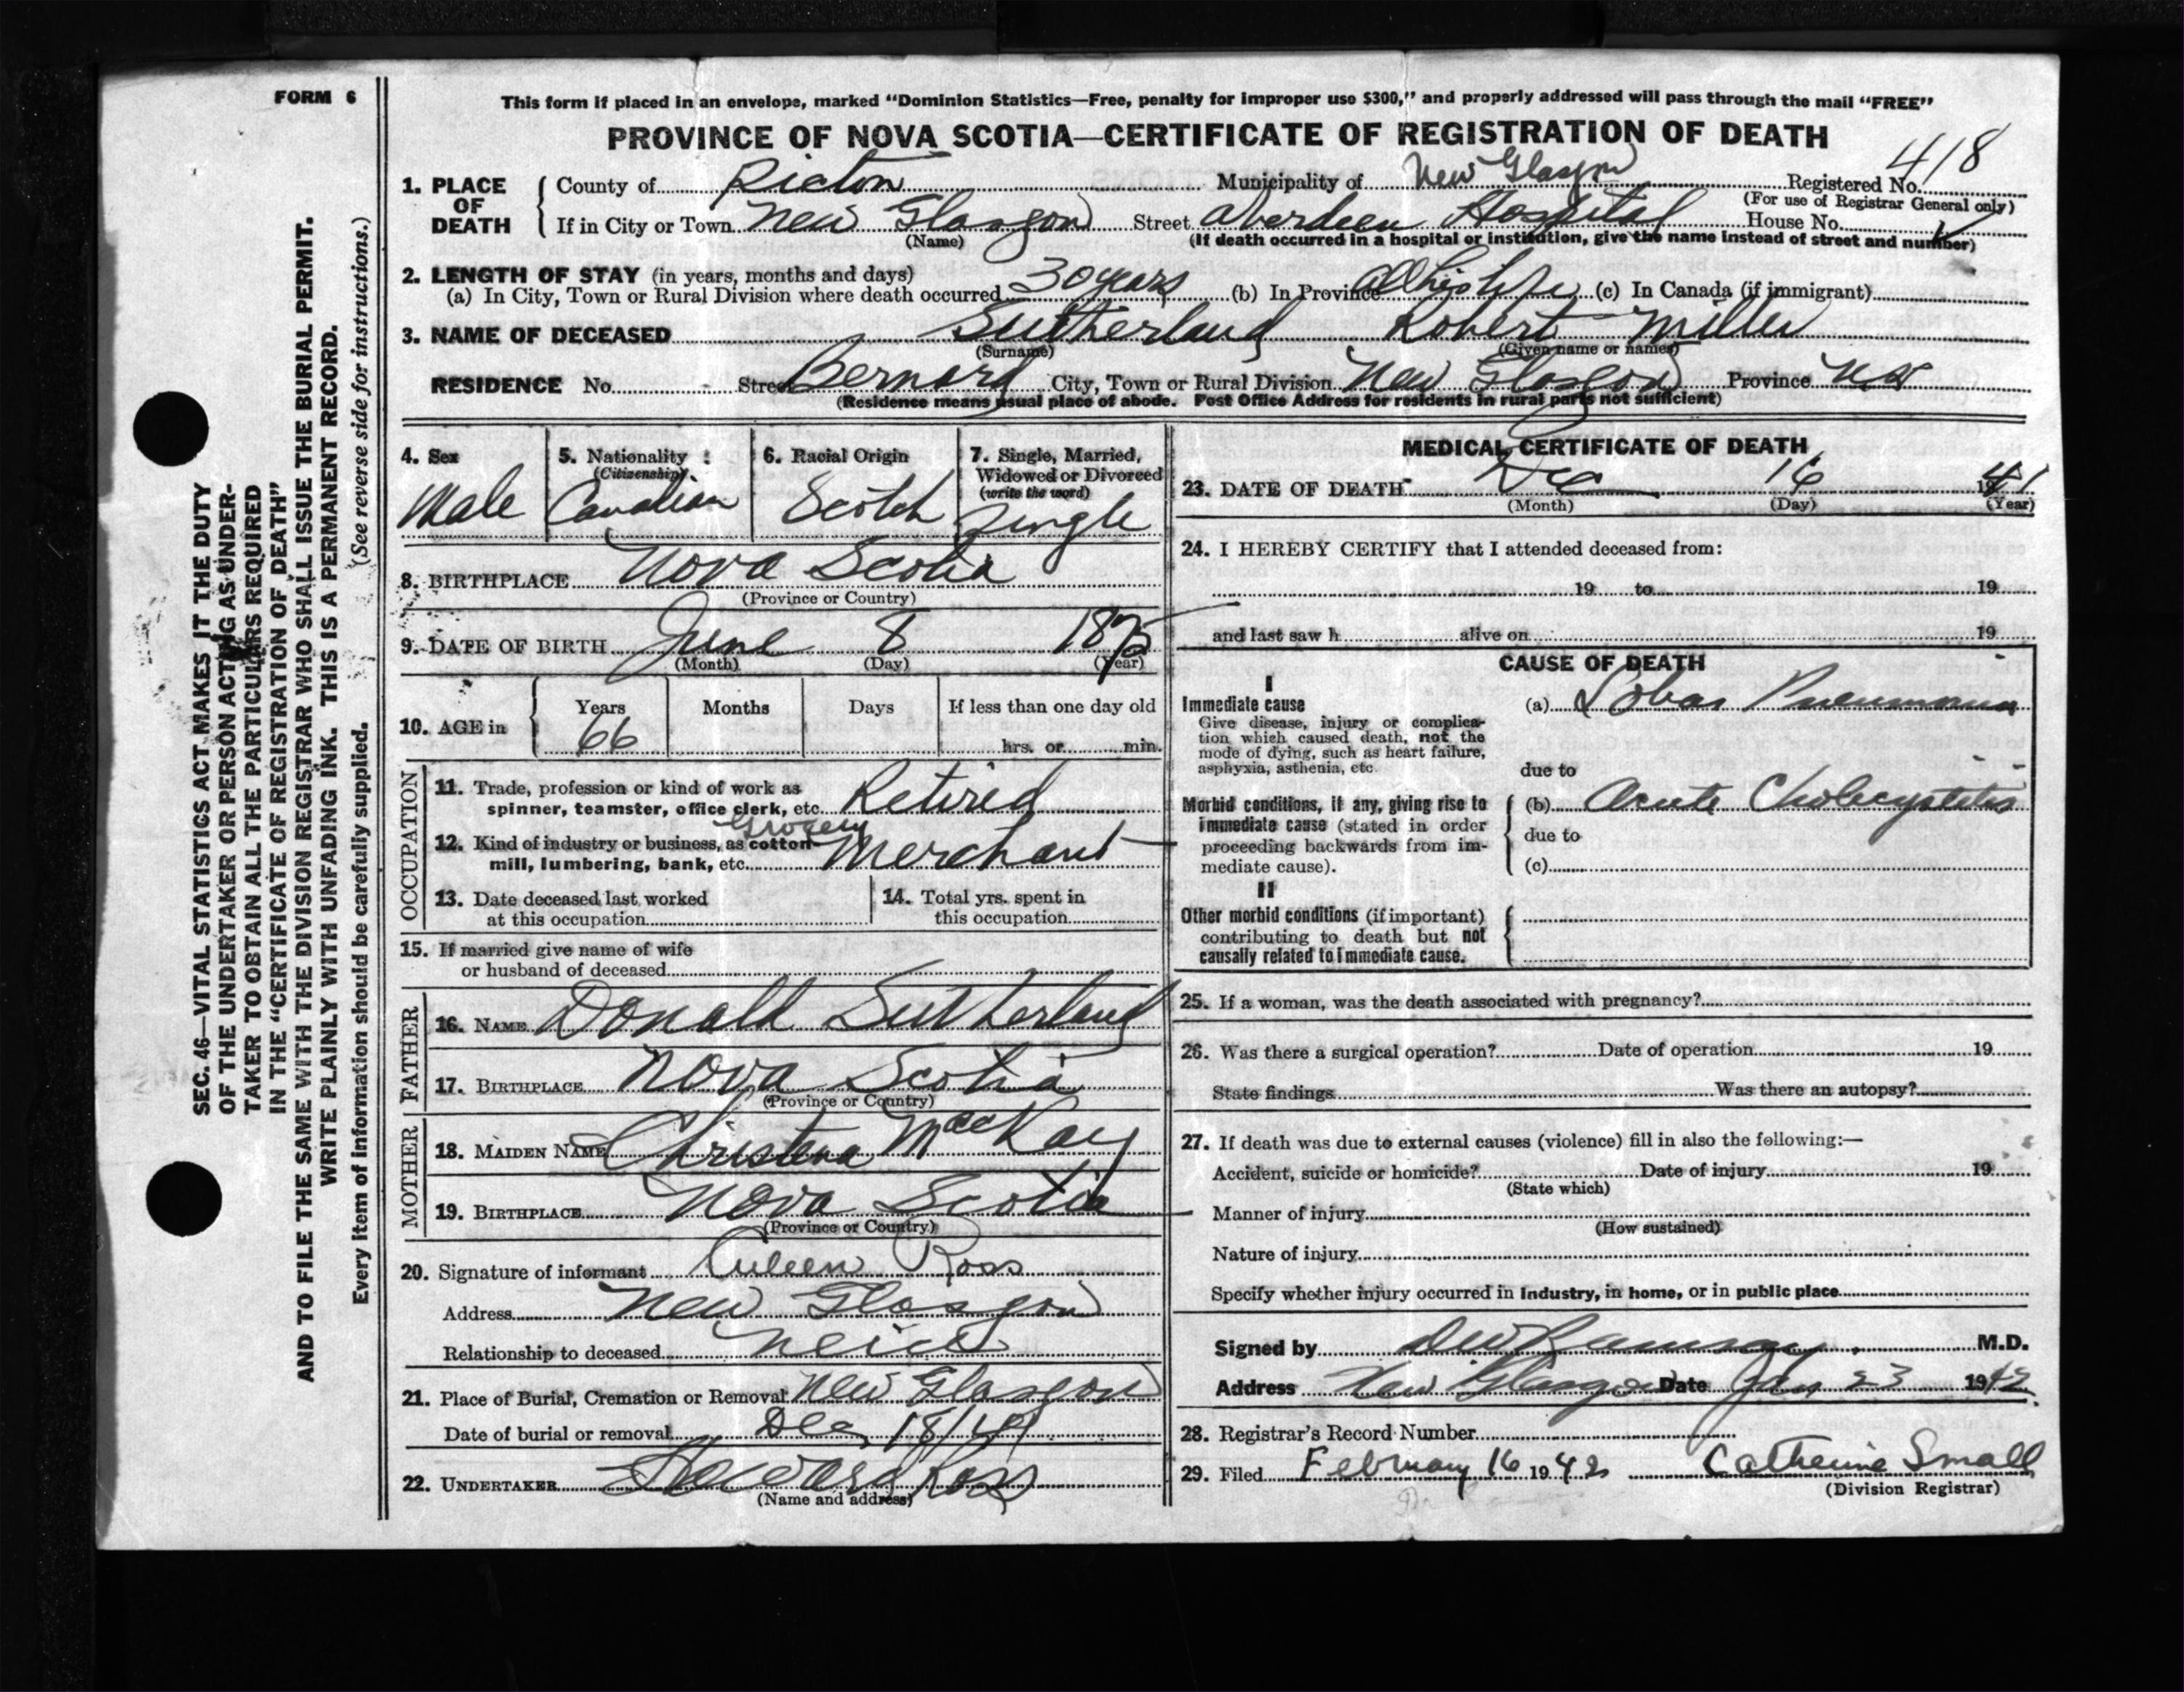 FORM 6
This form if placed in an envelope, marked “Dominion Statistics—Free, penalty for improper use $300,” and properly addressed will pass through the mail “FREE”
PROVINCE OF NOVA SCOTIA—CERTIFICATE OF REGISTRATION OF DEATH
418
1. PLACE OF DEATH County of Pictou Municipality of New Glasgow Registered No.
(For use of Registrar General only)
If in City or Town New Glasgow Street Aberdeen Hospital House No.
(Name) (If death occurred in a hospital or institution, give the name instead of street and number)
2. LENGTH OF STAY (in years, months and days)
(a) In City, Town or Rural Division where death occurred 30 years (b) In Province all his life (c) In Canada (if immigrant)
3. NAME OF DECEASED Sutherland Robert Miller
(Surname) (Given name or names)
RESIDENCE No. Street Bernard City, Town or Rural Division New Glasgow Province NS
(Residence means usual place of abode. Post Office Address for residents in rural parts not sufficient)
4. Sex
Male
5. Nationality
(Citizenship)
Canadian
6. Racial Origin
Scotch
7. Single, Married,
Widowed or Divorced
(write the word)
Single
8. BIRTHPLACE Nova Scotia
(Province or Country)
9. DATE OF BIRTH June 8 1875
(Month) (Day) (Year)
10. AGE in Years Months Days If less than one day old
66 hrs. or min.
OCCUPATION
11. Trade, profession or kind of work as
spinner, teamster, office clerk, etc. Retired
12. Kind of industry or business, as cotton
mill, lumbering, bank, etc. Grocery Merchant
13. Date deceased last worked
at this occupation
14. Total yrs. spent in
this occupation
15. If married give name of wife
or husband of deceased
FATHER
16. NAME Donald Sutherland
17. BIRTHPLACE Nova Scotia
(Province or Country)
MOTHER
18. MAIDEN NAME Christena MacKay
19. BIRTHPLACE Nova Scotia
(Province or Country)
20. Signature of informant Aileen Ross
Address New Glasgow
Relationship to deceased Neice
21. Place of Burial, Cremation or Removal New Glasgow
Date of burial or removal Dec 18/41
22. UNDERTAKER Howard Ross
(Name and address)
MEDICAL CERTIFICATE OF DEATH
23. DATE OF DEATH Dec 16 1941
(Month) (Day) (Year)
24. I HEREBY CERTIFY that I attended deceased from:
19 to 19
and last saw h alive on 19
CAUSE OF DEATH
I
Immediate cause
Give disease, injury or complica-
tion which caused death, not the
mode of dying, such as heart failure,
asphyxia, asthenia, etc
(a) Lobar Pneumonia
due to
Morbid conditions, if any, giving rise to
immediate cause (stated in order
proceeding backwards from im-
mediate cause).
(b) Acute Cholecystitis
due to
(c)
II
Other morbid conditions (if important)
contributing to death but not
causally related to immediate cause.
25. If a woman, was the death associated with pregnancy?
26. Was there a surgical operation? Date of operation 19
State findings Was there an autopsy?
27. If death was due to external causes (violence) fill in also the following:—
Accident, suicide or homicide? Date of injury 19
(State which)
Manner of injury
(How sustained)
Nature of injury
Specify whether injury occurred in industry, in home, or in public place
Signed by Ramsay M.D.
Address New Glasgow Date Jan 23 1942
28. Registrar's Record Number
29. Filed February 16 1942 Catherine Small
(Division Registrar)
SEC. 46—VITAL STATISTICS ACT MAKES IT THE DUTY
OF THE UNDERTAKER OR PERSON ACTING AS UNDER-
TAKER TO OBTAIN ALL THE PARTICULARS REQUIRED
IN THE “CERTIFICATE OF REGISTRATION OF DEATH”
AND TO FILE THE SAME WITH THE DIVISION REGISTRAR WHO SHALL ISSUE THE BURIAL PERMIT.
WRITE PLAINLY WITH UNFADING INK. THIS IS A PERMANENT RECORD.
Every item of information should be carefully supplied. (See reverse side for instructions.)